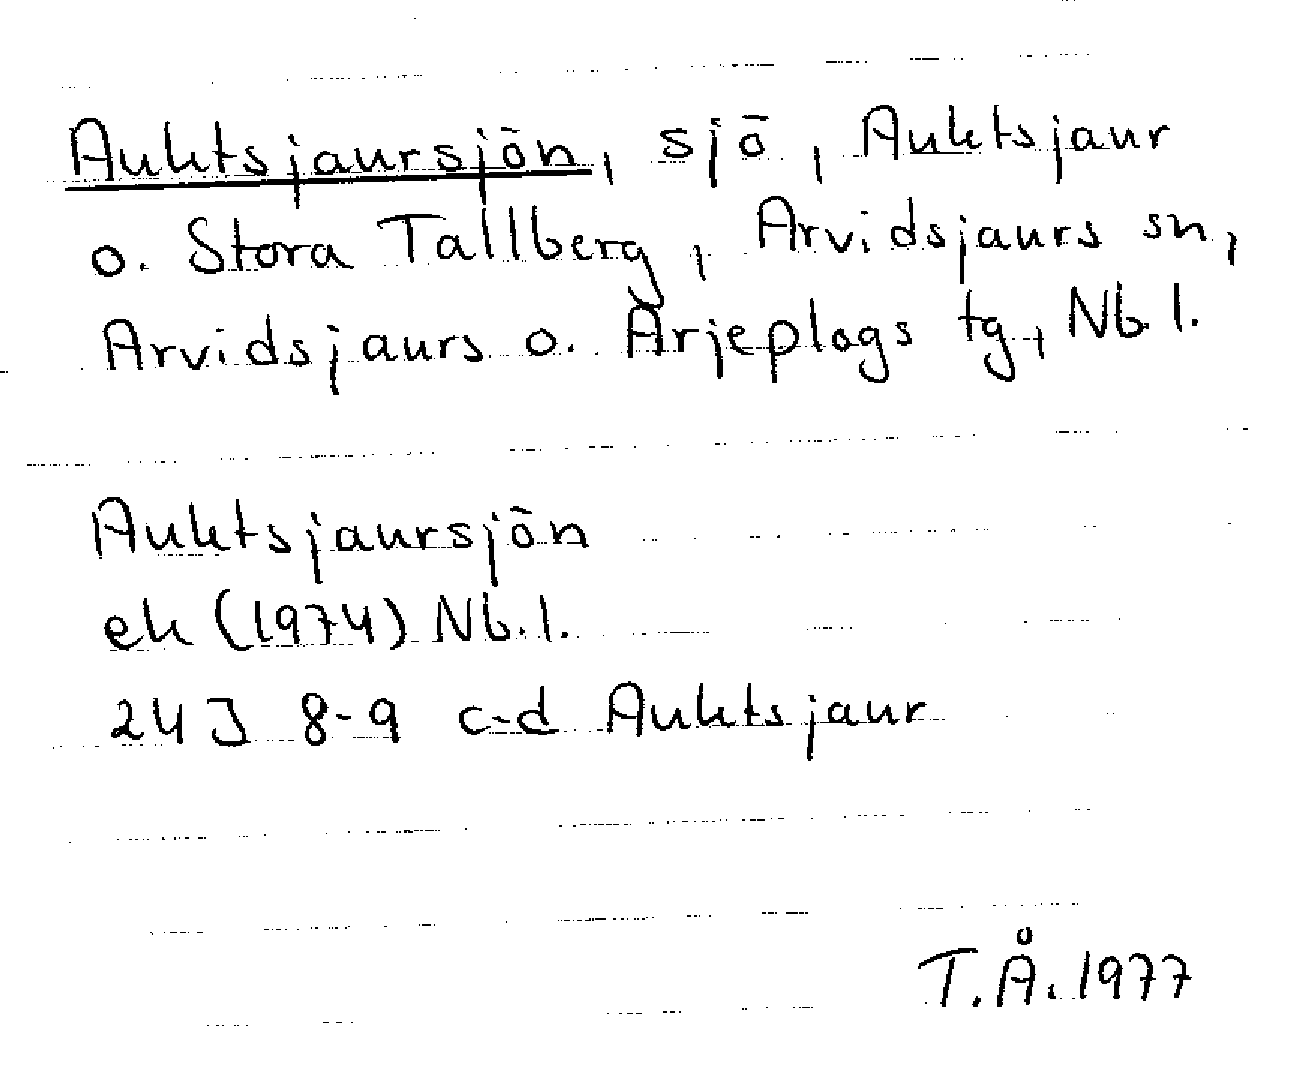 Auktsjaursjön, sjö, Auktsjaur
o. Stora Tallberg, Arvidsjaurs sn,
Arvidsjaurs o. Arjeplogs tg, Nb. l.
Auktsjaursjön
ek (1974) Nb. l.
24J 8-9 c-d Auktsjaur
T.Å. 1977